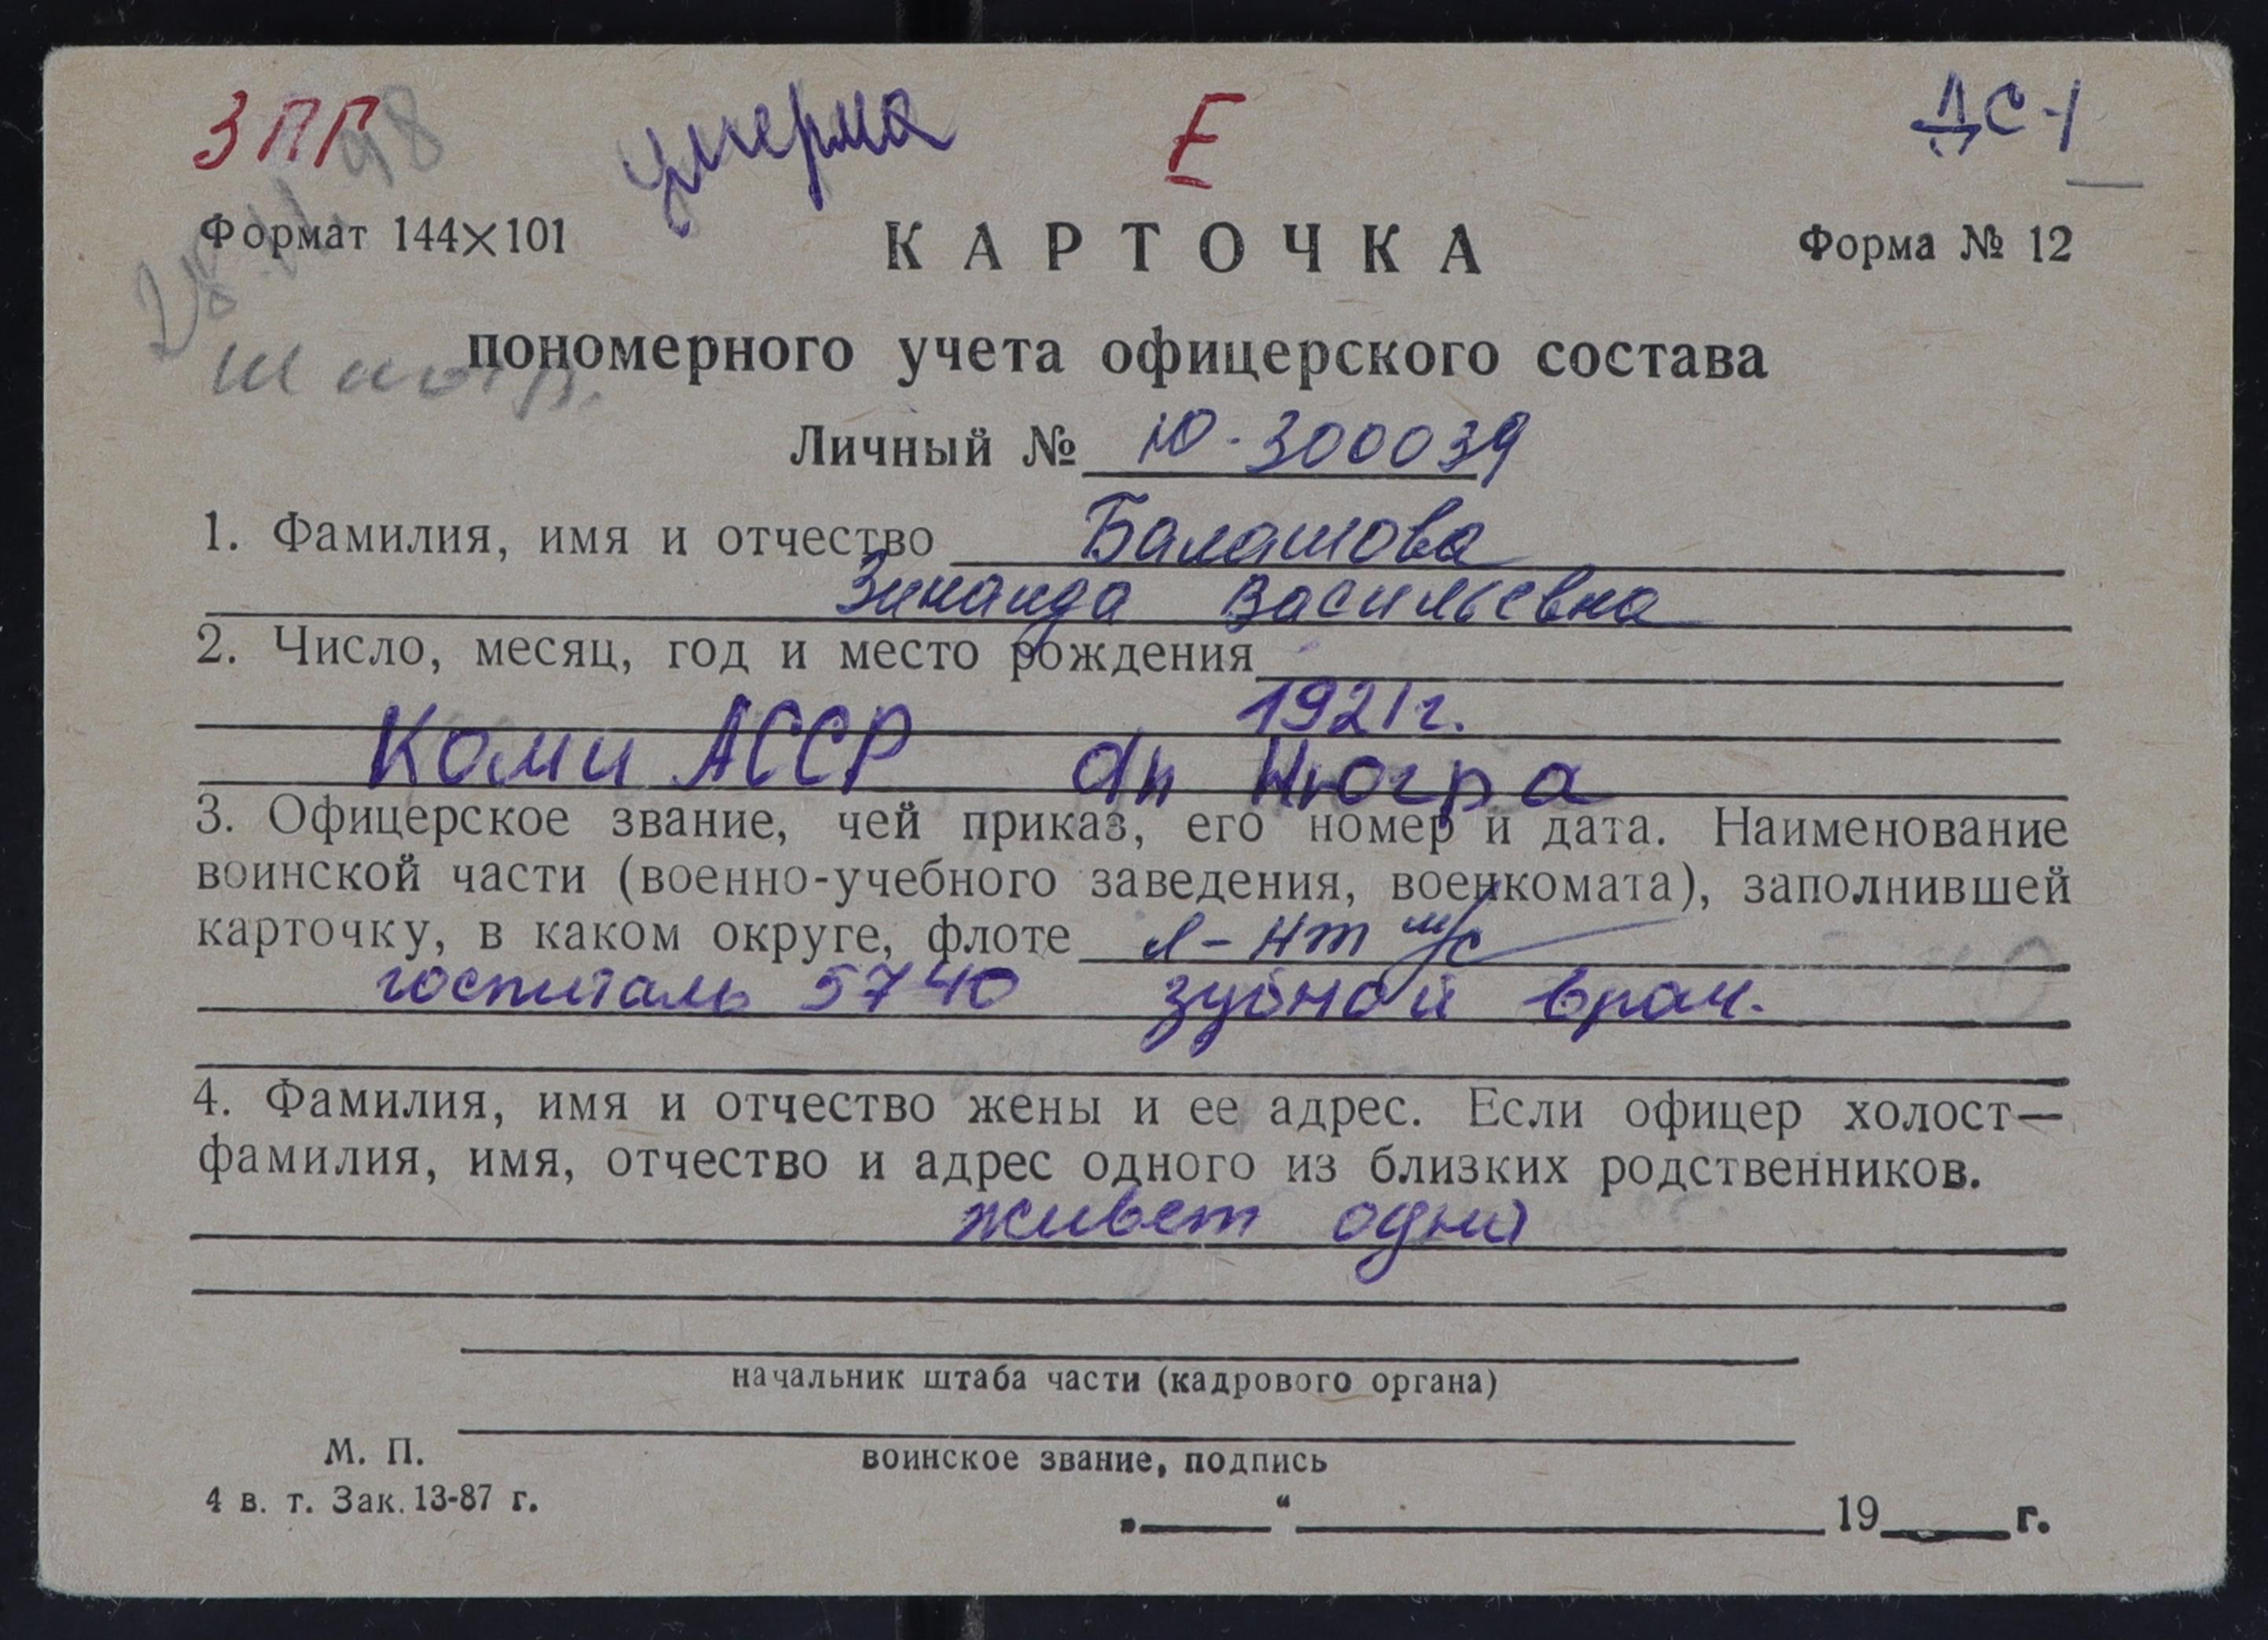 ЗПГ умерла Е ДС-1
Формат 144×101 КАРТОЧКА Форма № 12
пономерного учета офицерского состава
Личный № Ю-300039
1. Фамилия, имя и отчество Балашова
Зинаида Васильевна
2. Число, месяц, год и место рождения
1921г.
Коми АССР дп Нюгра
3. Офицерское звание, чей приказ, его номер и дата. Наименование
воинской части (военно-учебного заведения, военкомата), заполнившей
карточку, в каком округе, флоте л-нт м/с
госпиталь 5740 зубной врач.
4. Фамилия, имя и отчество жены и ее адрес. Если офицер холост—
фамилия, имя, отчество и адрес одного из близких родственников.
живет одна
начальник штаба части (кадрового органа)
М. П.
воинское звание, подпись
4 в. т. Зак. 13-87 г.
„ “ 19 г.